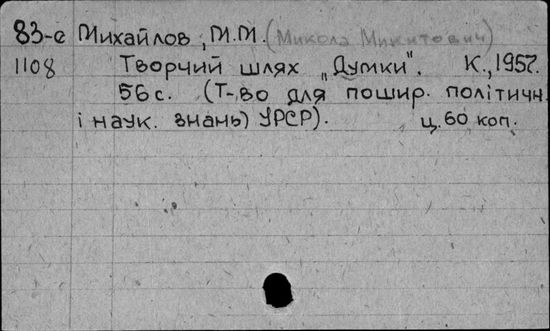 83-е Михайлов, М.М. (Микола Микитович)
1108 Творчий шлях „Думки". К., 1957.
56 с. (Т-во для пошир. політичн.
і наук. знань) УРСР).
ц. 60 коп.